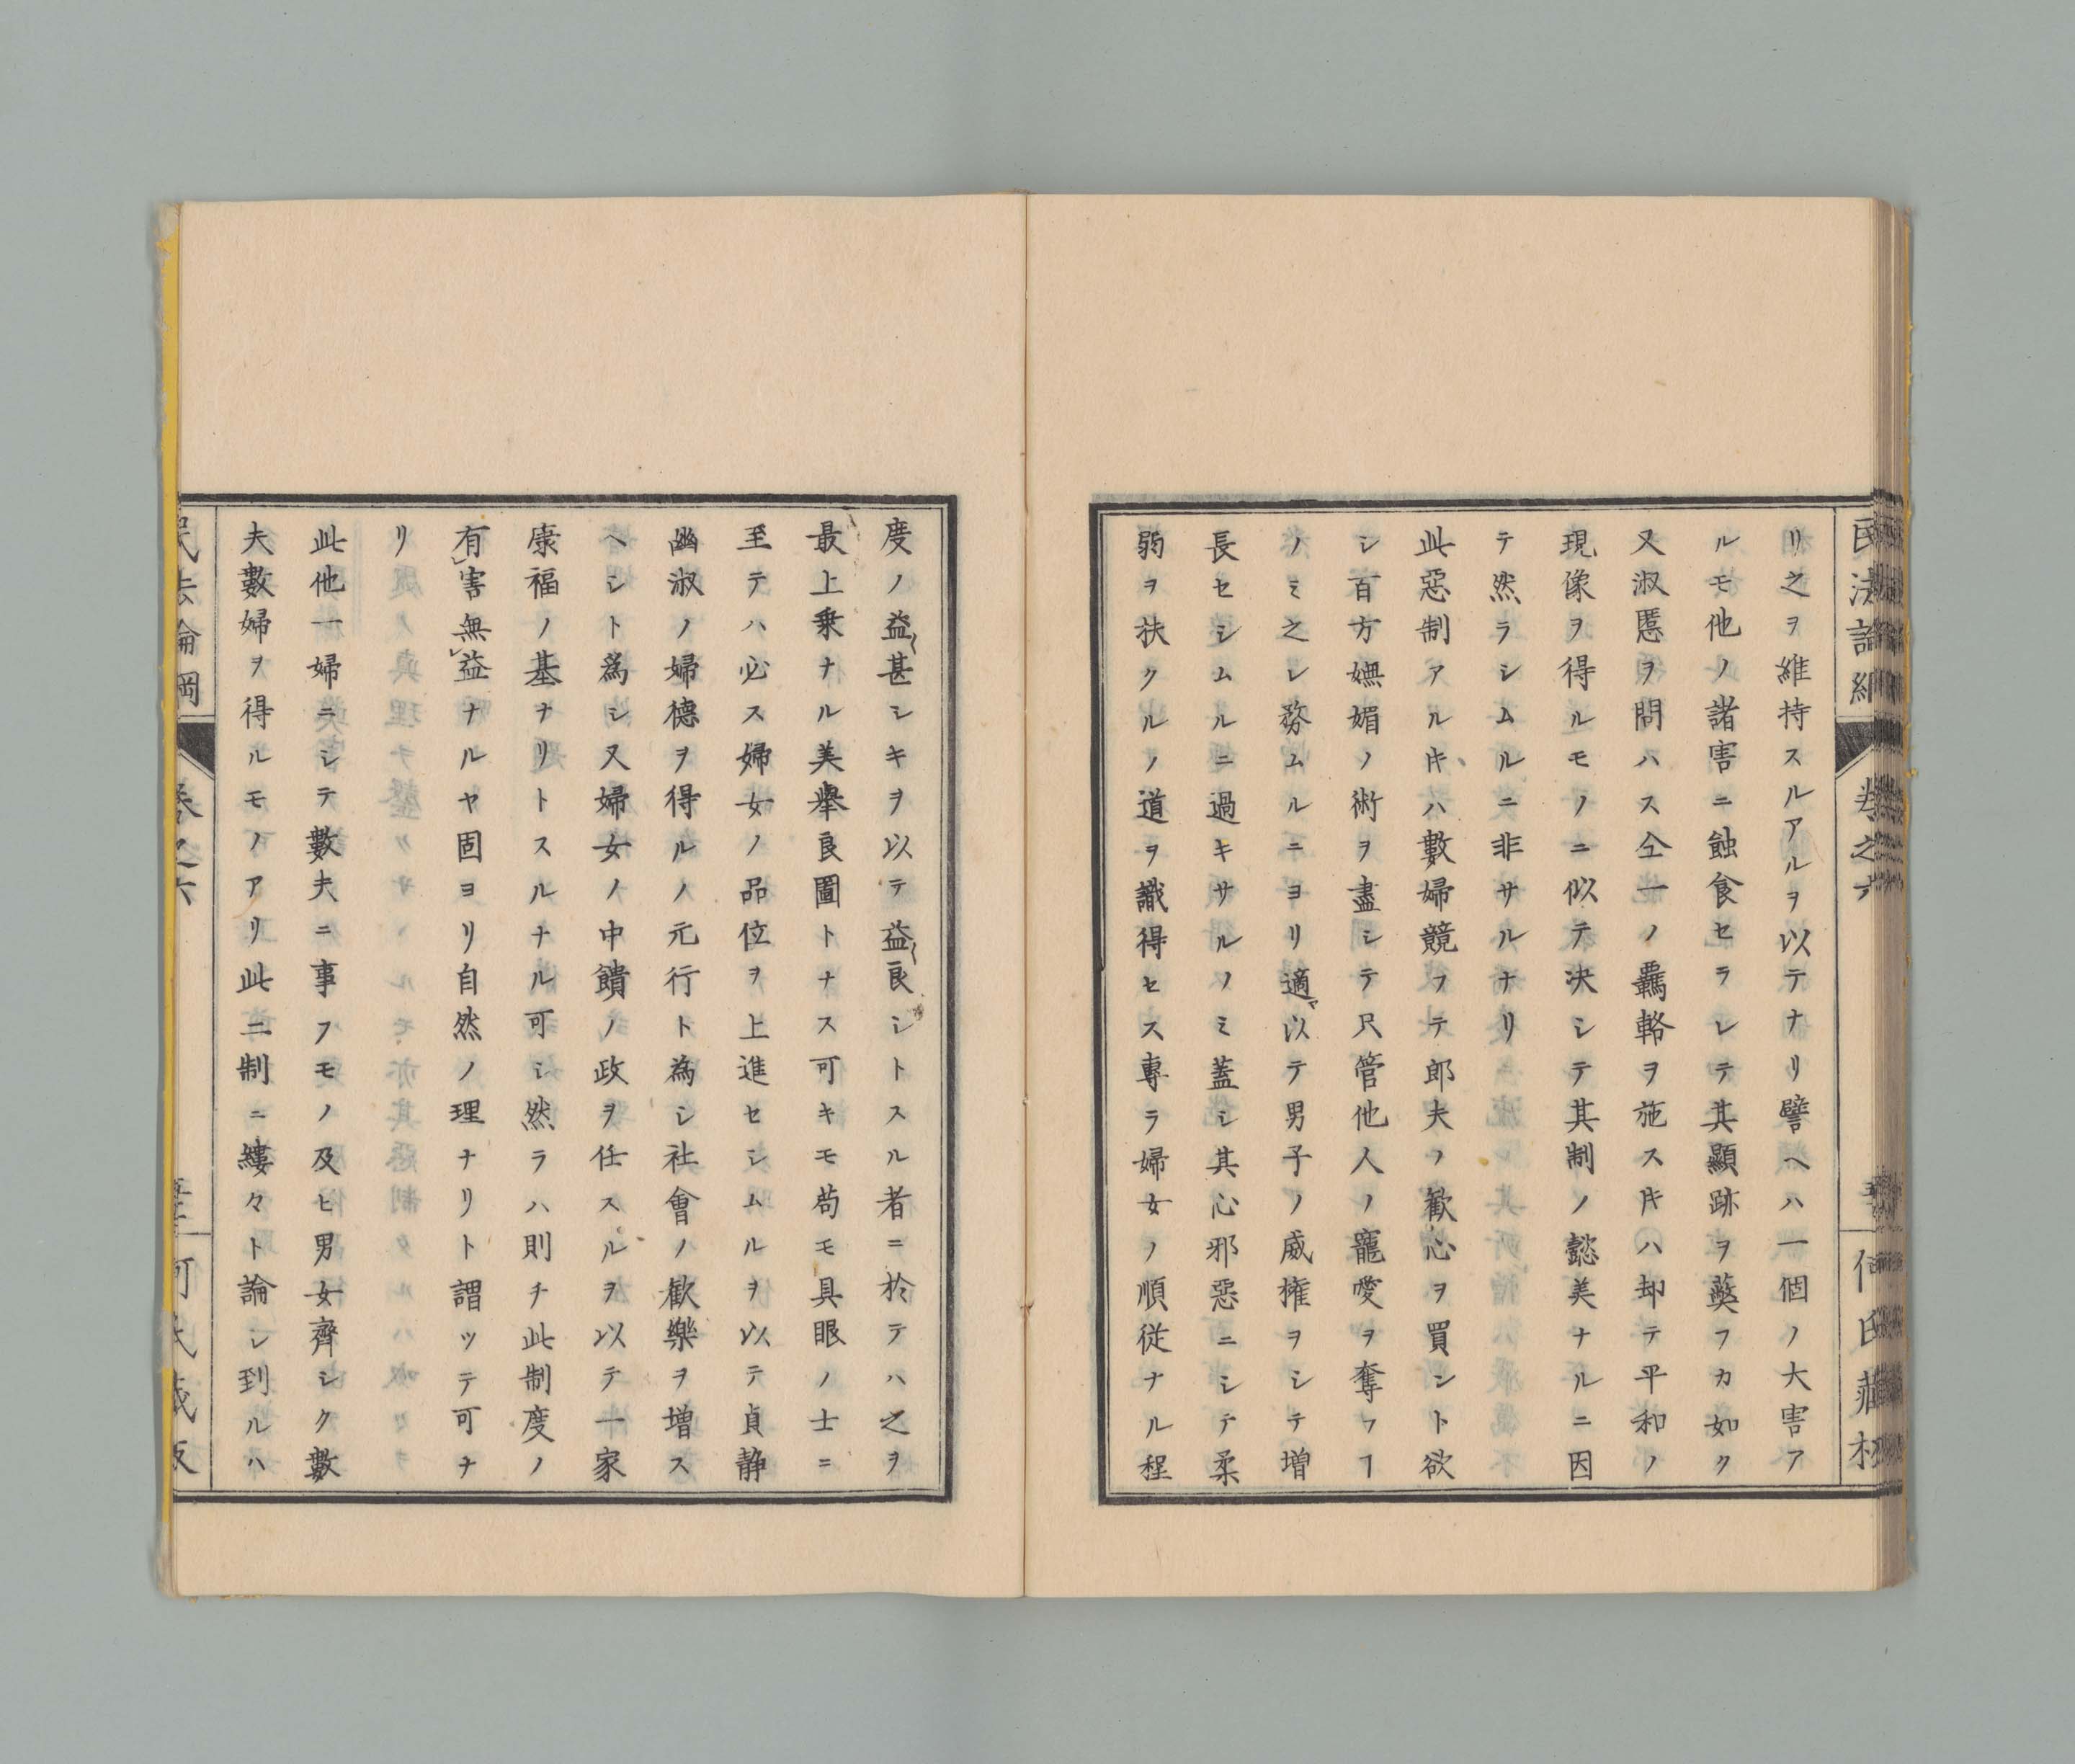 民法論綱
卷之六
何氏藏板
リ之ヲ維持スルアルヲ以テナリ譬ヘハ一個ノ大害ア
ルモ他ノ諸害ニ蝕食セラレテ其顯跡ヲ蔽フカ如ク
又淑慝ヲ問ハス仝一ノ羈輅ヲ施スキハ却テ平和ノ
現像ヲ得ルモノニ似テ決シテ其制ノ懿美ナルニ因
テ然ラシムルニ非サルナリ
此惡制アルキハ數婦競フテ郎夫ノ歓心ヲ買ント欲
シ百方嫵媚ノ術ヲ盡シテ尺管他人ノ寵愛ヲ奪フヿ
ノミ之レ務ムルニヨリ適以テ男子ノ威権ヲシテ増
長セシムルニ過キサルノミ蓋シ其心邪惡ニシテ柔
弱ヲ扶クルノ道ヲ識得セス專ラ婦女ノ順従ナル程
度ノ益甚シキヲ以テ益良シトスル者ニ於テハ之ヲ
最上乗ナル美舉良圖トナス可キモ苟モ具眼ノ士ニ
至テハ必ス婦女ノ品位ヲ上進セシムルヲ以テ貞静
幽淑ノ婦德ヲ得ルノ元行ト為シ社會ノ歓樂ヲ増ス
ヘシト為シ又婦女ノ中饋ノ政ヲ任スルヲ以テ一家
康福ノ基ナリトスルナル可シ然ラハ則チ此制度ノ
有害無益ナルヤ固ヨリ自然ノ理ナリト謂ッテ可ナ
リ
此他一婦ニシテ數夫ニ事フモノ及ヒ男女齊シク數
夫數婦ヲ得ルモノアリ此二制ニ縷々ト論シ到ルハ
民法論綱
卷之六
何氏藏板